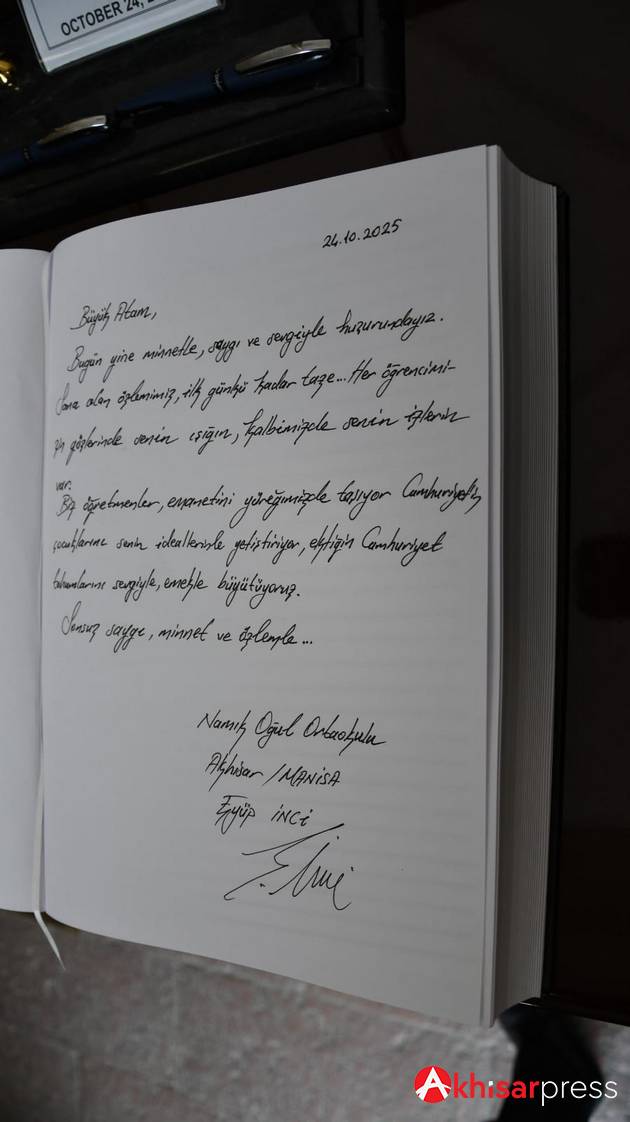 OCTOBER 24, 2
24.10.2025
Büyük Atam,
Bugün yine minnetle, saygı ve sevgiyle huzurundayız.
Sana olan özlemimiz, ilk günkü kadar taze... Her öğrencimi-
zin gözlerinde senin ışığın, kalbimizde senin izlerin
var.
Biz öğretmenler, emanetini yüreğimizde taşıyor Cumhuriyet'in
çocuklarını senin ideallerinle yetiştiriyor, ektiğin Cumhuriyet
tohumlarını sevgiyle, emekle büyütüyoruz.
Sonsuz saygı, minnet ve özlemle...
Namık Oğul Ortaokulu
Akhisar / MANİSA
Eyüp İNCİ
Akhisarpress